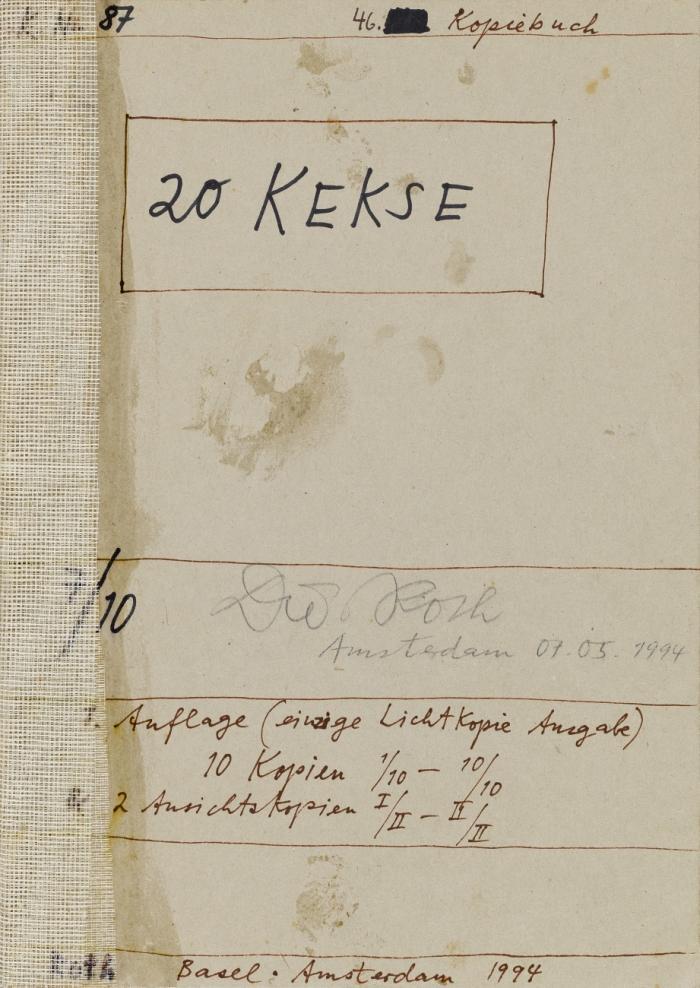 87 46. Kopiebuch
20 KEKSE
7/10
Dib Roth
Amsterdam 07.05.1994
1. Auflage (einzige Lichtkopie Ausgabe)
10 Kopien 1/10 – 10/10
2 Ansichtskopien I/II – II/II
Roth Basel · Amsterdam 1994